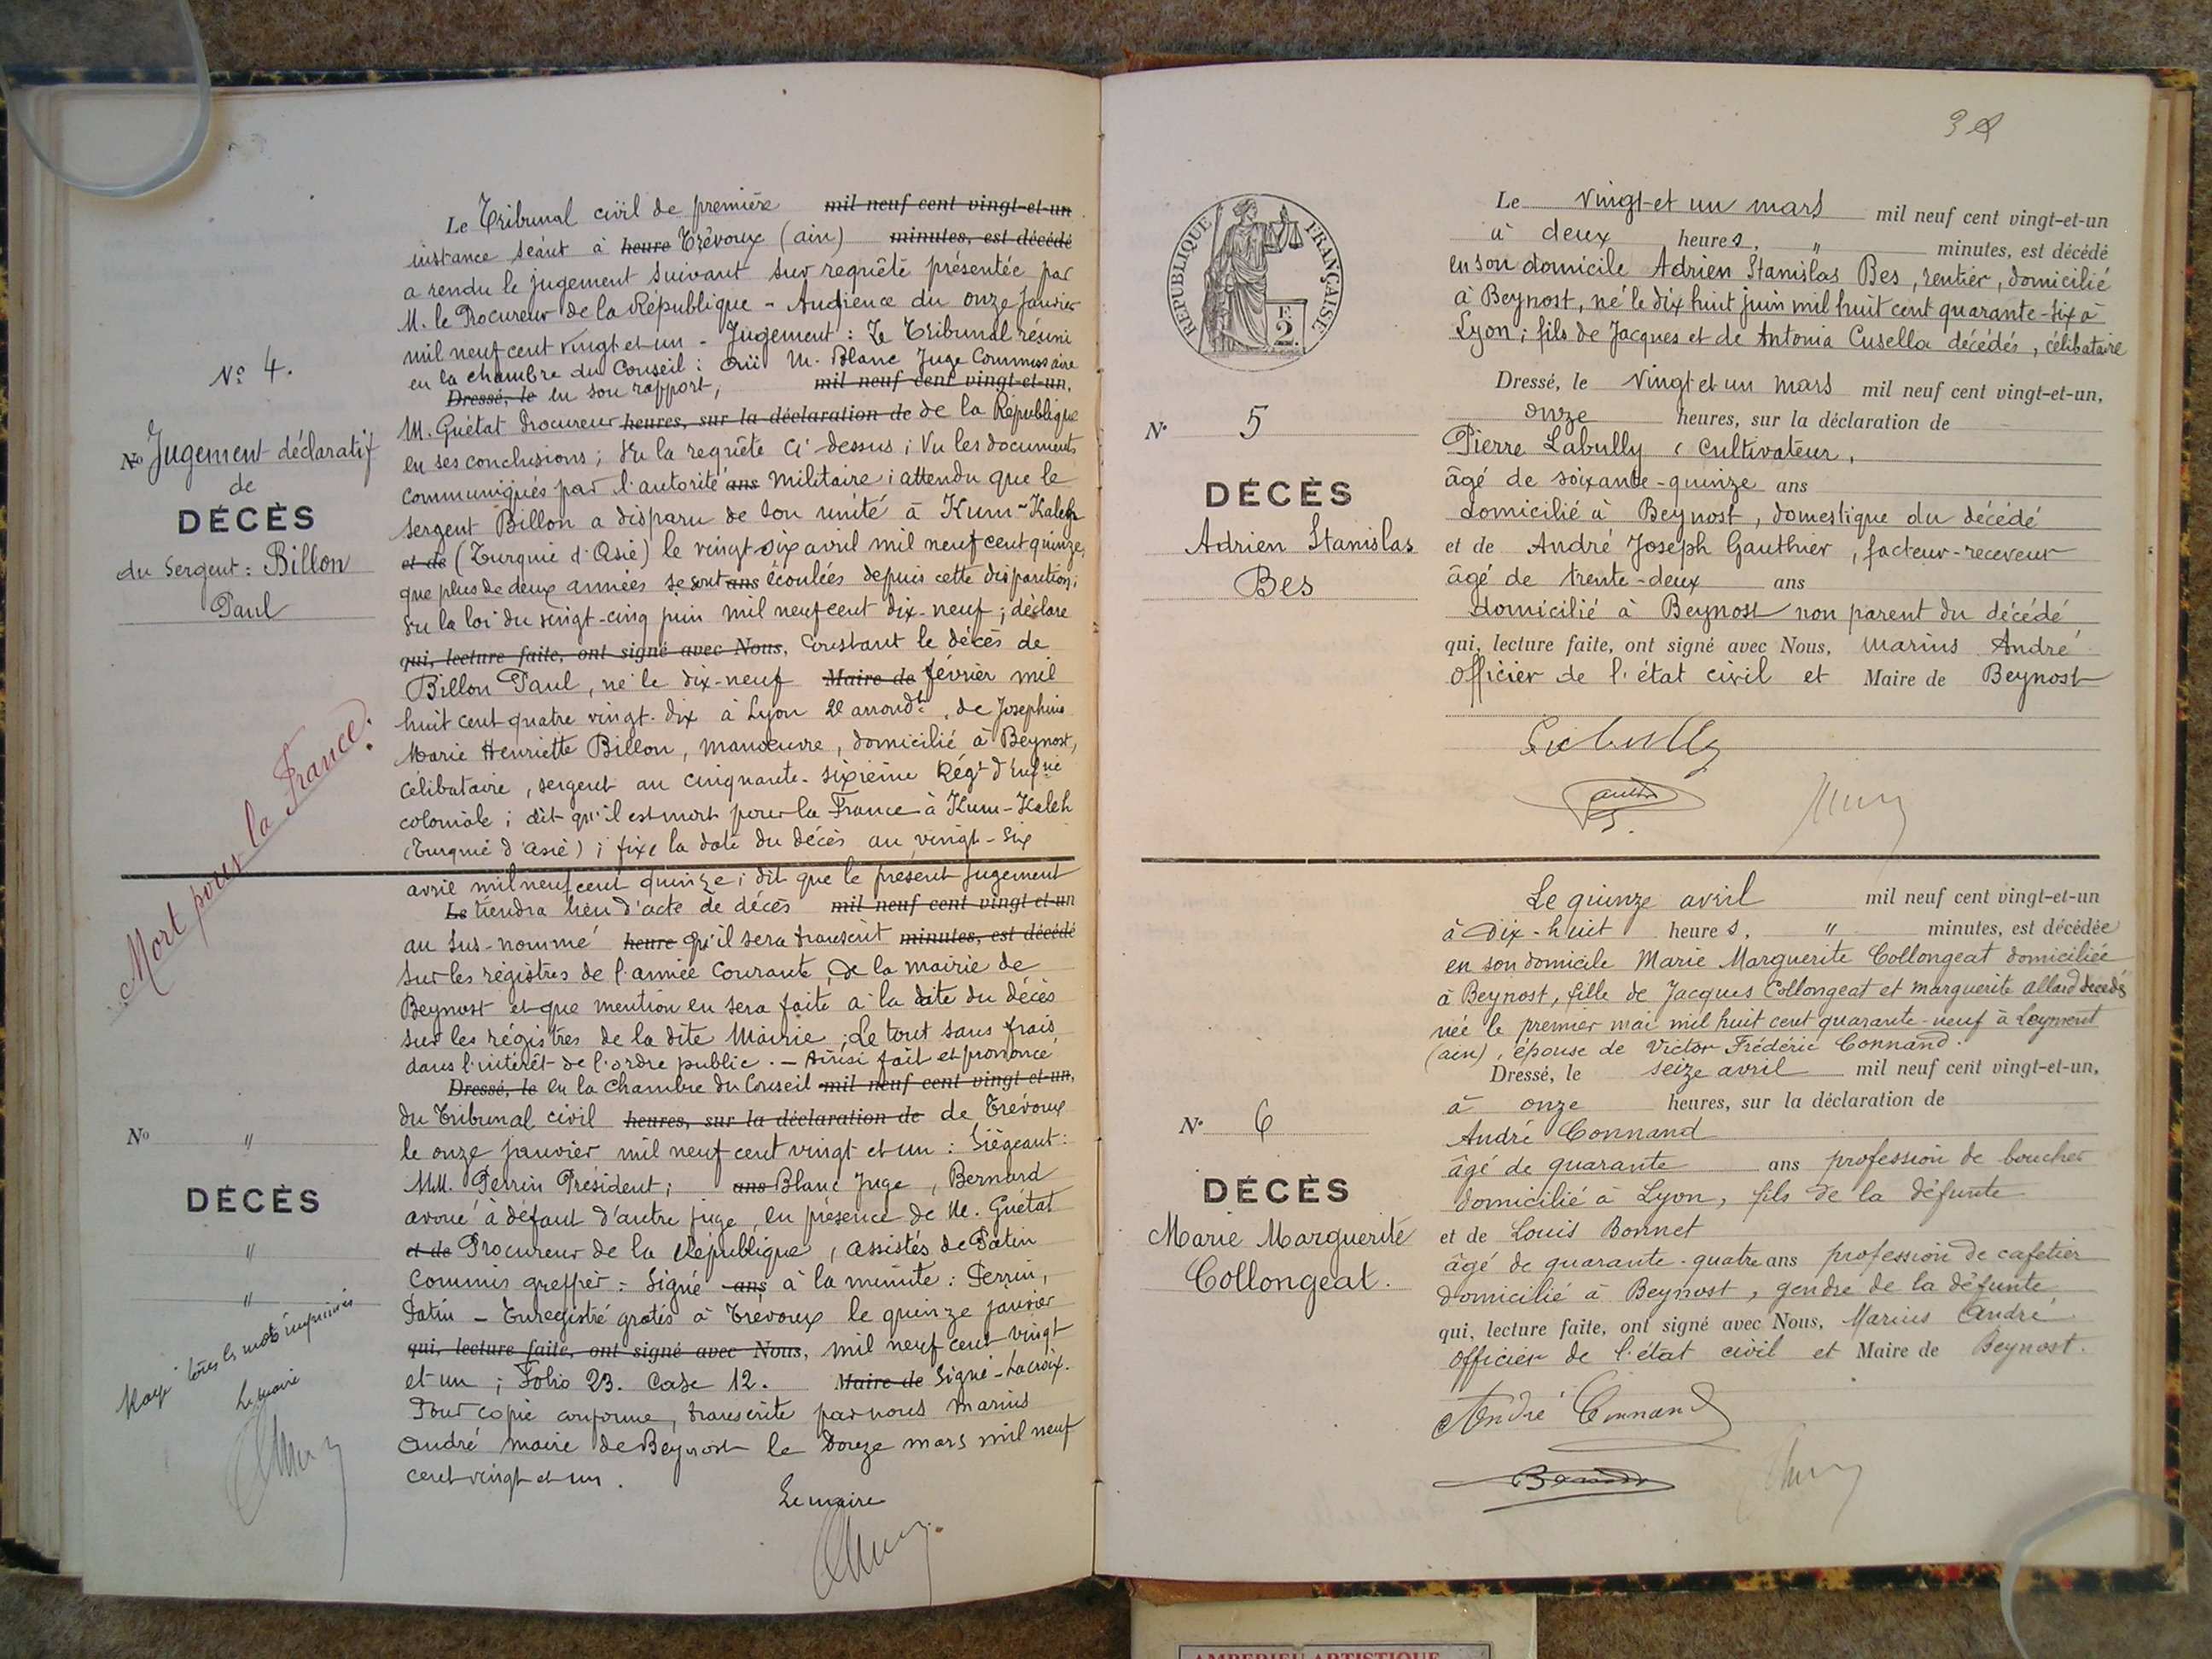 Nº 4.
Nº Jugement déclaratif
de
DÉCÈS
du Sergent : Billon
Paul
Mort pour la France.
Nº "
DÉCÈS
"
"
Rayé tous les mots imprimés
Le maire
Le Tribunal civil de première mil neuf cent vingt-et-un
instance séant à heure Trévoux (ain) minutes, est décédé
a rendu le jugement suivant sur requête présentée par
M. le Procureur de la République - Audience du onze Janvier
mil neuf cent vingt et un - Jugement : Le Tribunal réuni
en la chambre du Conseil : Ouï M. Blanc Juge Commissaire
Dressé, le en son rapport, mil neuf cent vingt-et-un,
M. Guétat Procureur heures, sur la déclaration de de la République
en ses conclusions ; Vu la requête ci-dessus ; Vu les documents
communiqués par l'autorité ans militaire ; attendu que le
sergent Billon a disparu de son unité à Kum-Kaleh
et de (Turquie d'Asie) le vingt six avril mil neuf cent quinze,
que plus de deux années se sont ans écoulées depuis cette disparition ;
Vu la loi du vingt-cinq juin mil neuf cent dix-neuf ; déclare
qui, lecture faite, ont signé avec Nous, constant le décès de
Billon Paul, né le dix-neuf Maire de février mil
huit cent quatre vingt-dix à Lyon 2e arrondt, de Josephine
Marie Henriette Billon, manœuvre, domicilié à Beynost,
célibataire, sergent au cinquante-sixième Régt d'Infie
coloniale ; dit qu'il est mort pour la France à Kum-Kaleh
(Turquie d'Asie) ; fixe la date du décès au vingt-six
avril mil neuf cent quinze ; dit que le présent jugement
Le tiendra lieu d'acte de décès mil neuf cent vingt-et-un
au sus-nommé heure qu'il sera transcrit minutes, est décédé
sur les régistres de l'année courante de la mairie de
Beynost et que mention en sera faite à la date du décès
sur les régistres de la dite Mairie ; Le tout sans frais
dans l'intérêt de l'ordre public. - Ainsi fait et prononcé
Dressé, le en la chambre du Conseil mil neuf cent vingt-et-un,
du Tribunal civil heures, sur la déclaration de de Trévoux
le onze janvier mil neuf cent vingt et un : Siégeant :
MM. Perrin Président ; ans Blanc Juge, Bernard
avoué à défaut d'autre juge, en présence de M. Guétat
et de Procureur de la République, assistés de Patin
Commis greffier : Signé ans à la minute : Perrin,
Patin - Enregistré gratis à Trévoux le quinze janvier
qui, lecture faite, ont signé avec Nous, mil neuf cent vingt
et un ; Folio 23. Case 12. Maire de Signé - Lacroix.
Pour copie conforme, transcrite par nous Marius
André maire de Beynost le douze mars mil neuf
cent vingt et un.
Le maire
RÉPUBLIQUE FRANÇAISE
F.
2.
Nº 5
DÉCÈS
Adrien Stanislas
Bes
Le vingt-et un mars mil neuf cent vingt-et-un
à deux heures, " minutes, est décédé
en son domicile Adrien Stanislas Bes, rentier, domicilié
à Beynost, né le dix huit juin mil huit cent quarante-six à
Lyon ; fils de Jacques et de Antonia Cusella décédés, célibataire
Dressé, le vingt et un mars mil neuf cent vingt-et-un,
onze heures, sur la déclaration de
Pierre Labully, cultivateur,
âgé de soixante-quinze ans
domicilié à Beynost, domestique du décédé
et de André Joseph Gauthier, facteur-receveur
âgé de trente-deux ans
domicilié à Beynost non parent du décédé
qui, lecture faite, ont signé avec Nous, Marius André
Officier de l'état civil et Maire de Beynost
Labully
Nº 6
DÉCÈS
Marie Marguerite
Collongeat.
Le quinze avril mil neuf cent vingt-et-un
à Dix-huit heures, " minutes, est décédée
en son domicile Marie Marguerite Collongeat domiciliée
à Beynost, fille de Jacques Collongeat et marguerite Allard décédés
née le premier mai mil huit cent quarante-neuf à Leyment
(ain), épouse de Victor Frédéric Connand.
Dressé, le seize avril mil neuf cent vingt-et-un,
à onze heures, sur la déclaration de
André Connand
âgé de quarante ans profession de boucher
domicilié à Lyon, fils de la défunte
et de Louis Bonnet
âgé de quarante-quatre ans profession de cafetier
domicilié à Beynost, gendre de la défunte
qui, lecture faite, ont signé avec Nous, Marius André
Officier de l'état civil et Maire de Beynost.
André Connand
AMBERIEU ARTISTIQUE